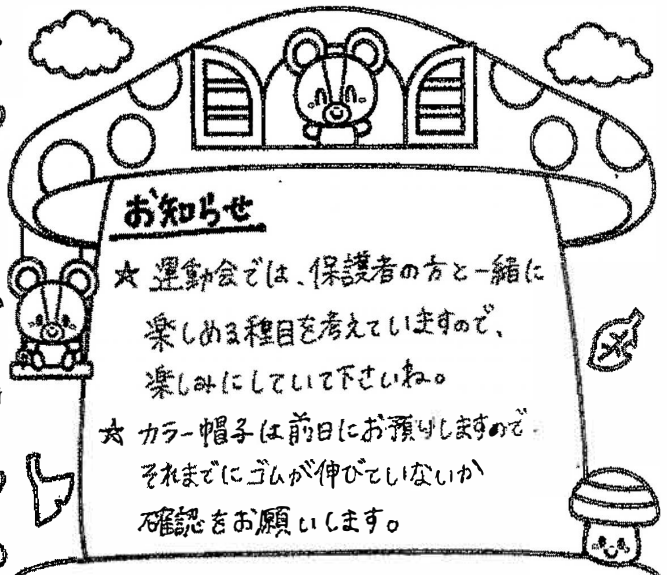 お知らせ
☆ 運動会では、保護者の方と一緒に
楽しめる種目を考えていますので、
楽しみにしていて下さいね。
☆ カラー帽子は前日にお預りしますので
それまでにゴムが伸びていないか
確認をお願いします。